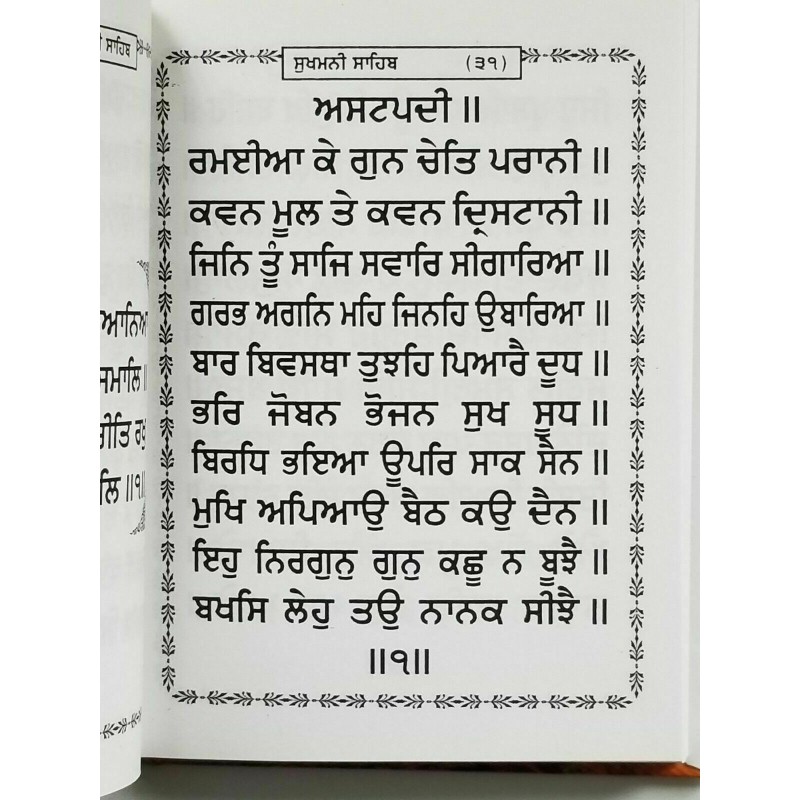 ੀ ਸਾਹਿਬ
ਆਨਿਆ
ਜਮਾਲਿ ॥
ਗੀਤਿ ਰਖੁ
ਲਿ ॥੧॥
ਸੁਖਮਨੀ ਸਾਹਿਬ (੩੧)
ਅਸਟਪਦੀ ॥
ਰਮਈਆ ਕੇ ਗੁਨ ਚੇਤਿ ਪਰਾਨੀ ॥
ਕਵਨ ਮੂਲ ਤੇ ਕਵਨ ਦ੍ਰਿਸਟਾਨੀ ॥
ਜਿਨਿ ਤੂੰ ਸਾਜਿ ਸਵਾਰਿ ਸੀਗਾਰਿਆ ॥
ਗਰਭ ਅਗਨਿ ਮਹਿ ਜਿਨਹਿ ਉਬਾਰਿਆ ॥
ਬਾਰ ਬਿਵਸਥਾ ਤੁਝਹਿ ਪਿਆਰੈ ਦੂਧ ॥
ਭਰਿ ਜੋਬਨ ਭੋਜਨ ਸੁਖ ਸੂਧ ॥
ਬਿਰਧਿ ਭਇਆ ਊਪਰਿ ਸਾਕ ਸੈਨ ॥
ਮੁਖਿ ਅਪਿਆਉ ਬੈਠ ਕਉ ਦੈਨ ॥
ਇਹੁ ਨਿਰਗੁਨੁ ਗੁਨੁ ਕਛੂ ਨ ਬੂਝੈ ॥
ਬਖਸਿ ਲੇਹੁ ਤਉ ਨਾਨਕ ਸੀਝੈ ॥
॥੧॥